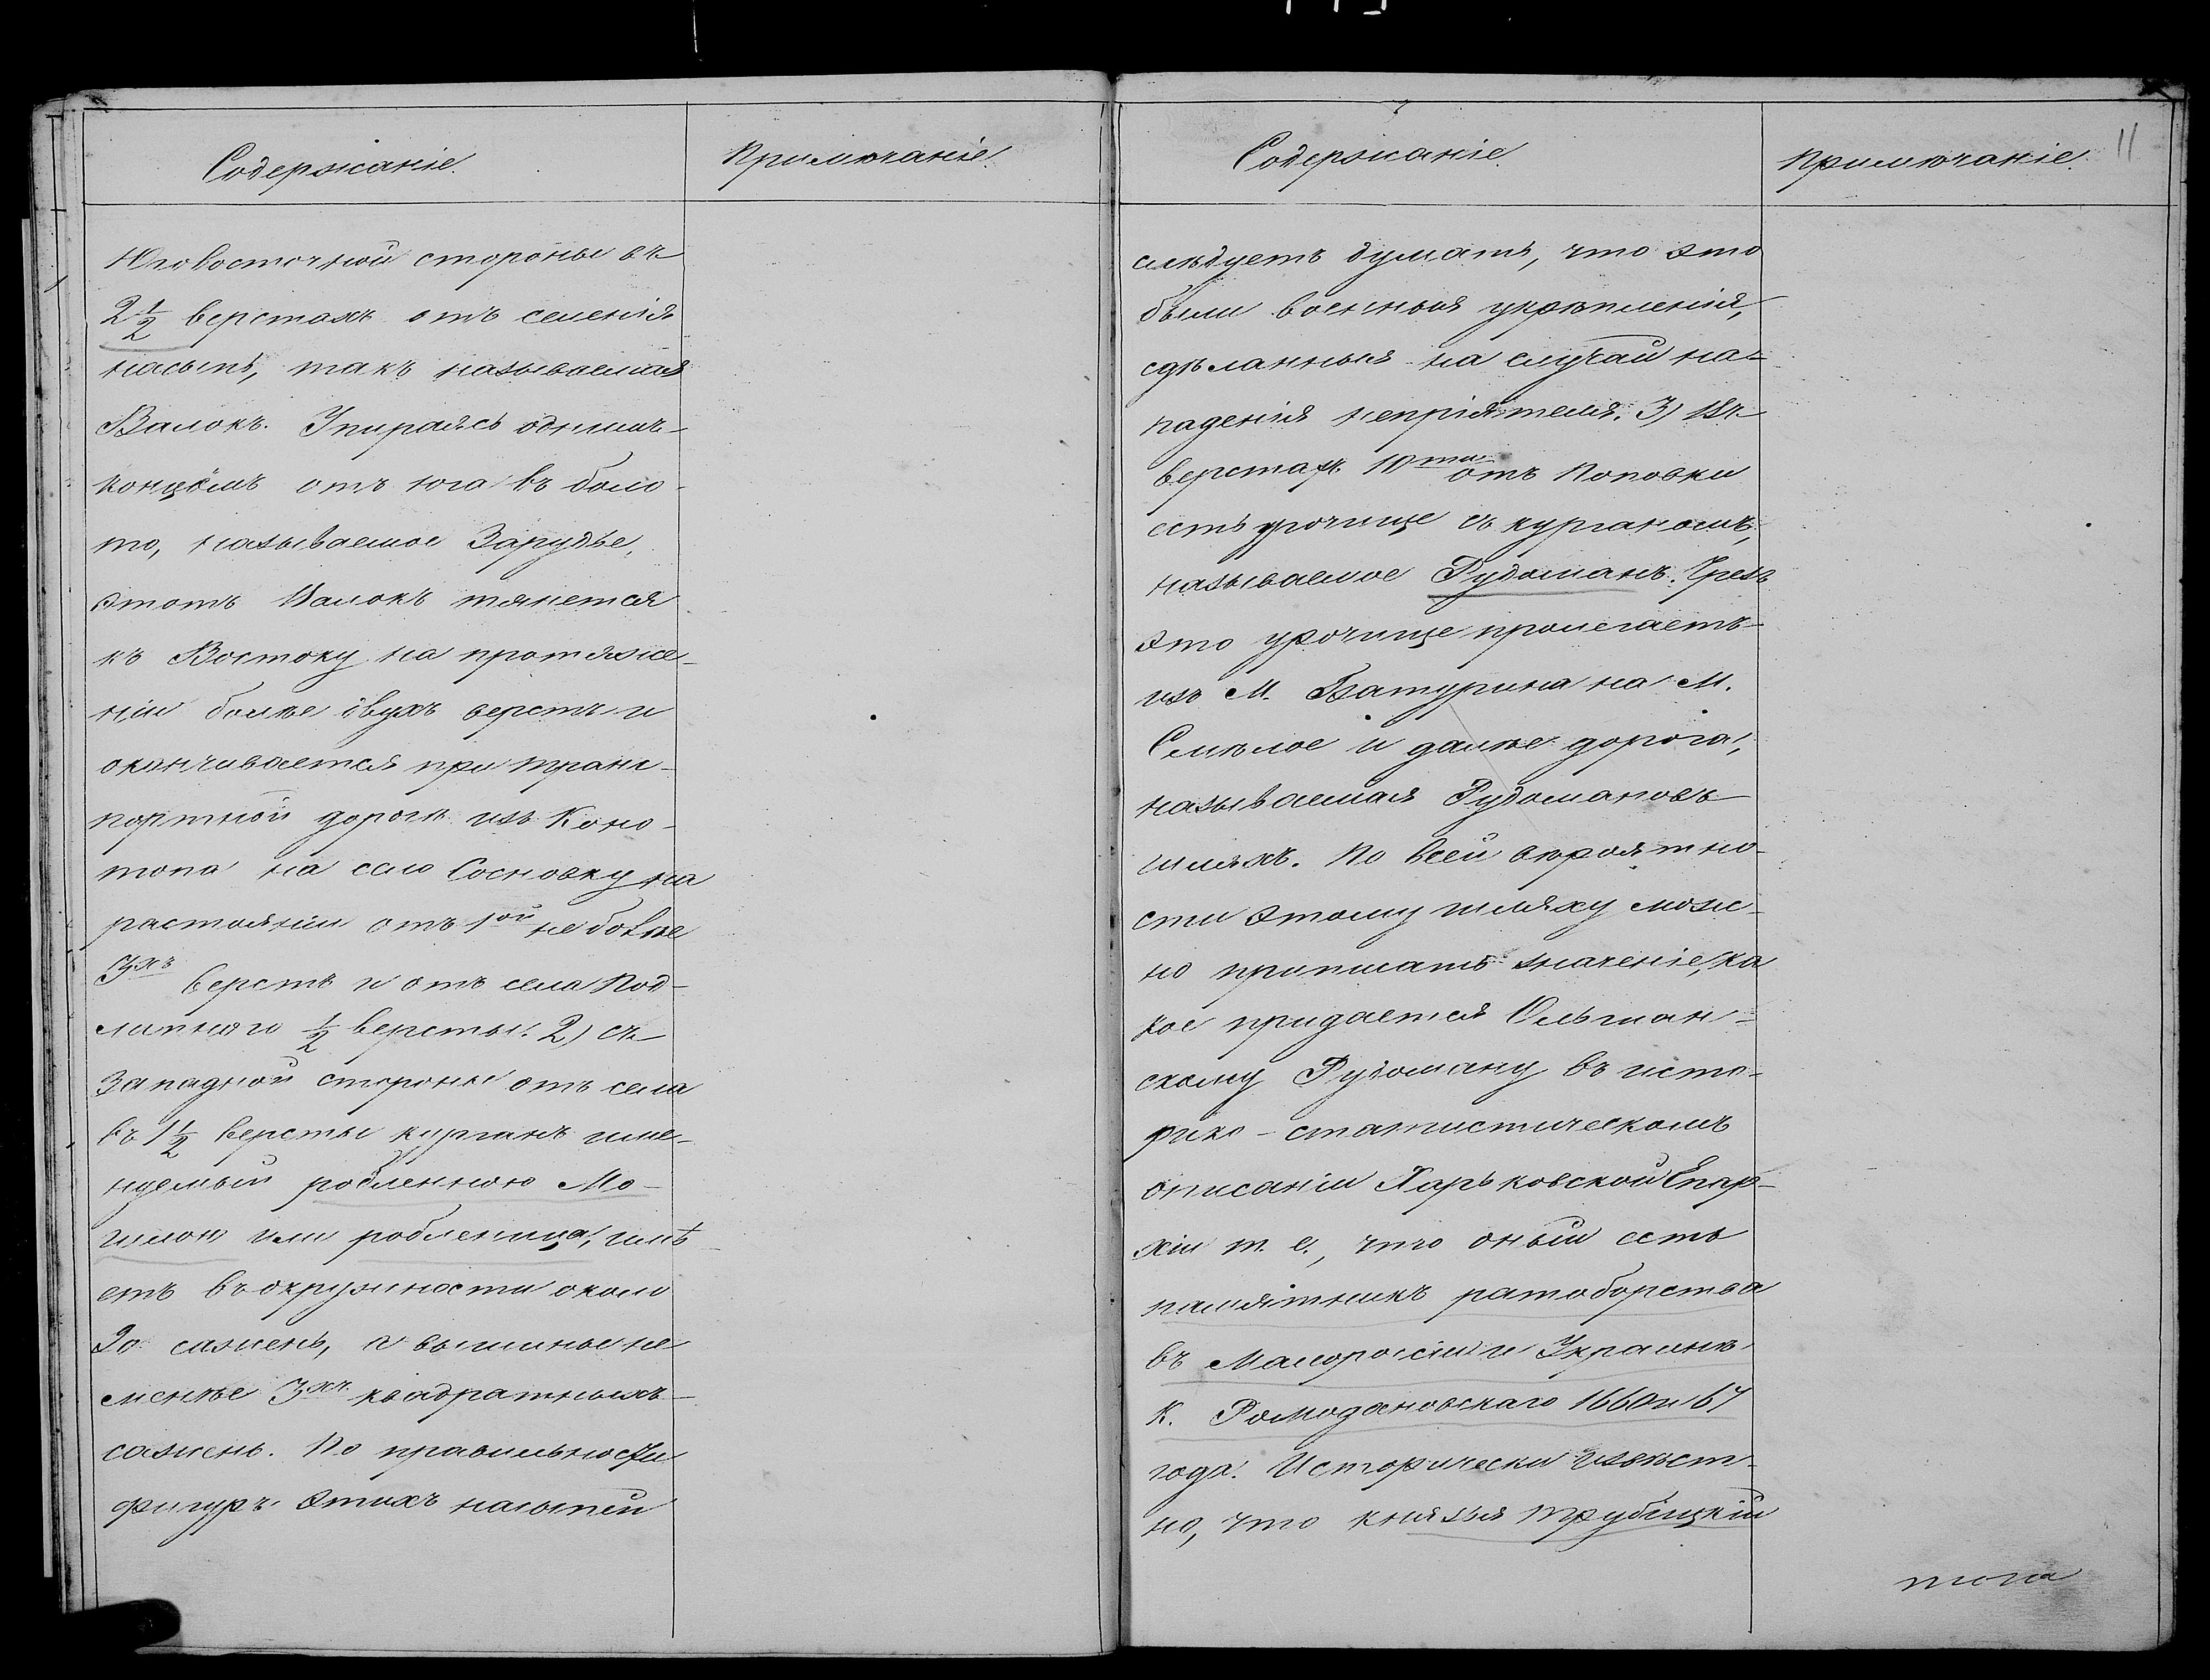 Содержаніе.
Примѣчаніе.
Юговосточной стороны въ
2 1/2 верстахъ отъ селенія
насыпь, такъ называемая
Валокъ. Упираясь однимъ
концомъ отъ юга въ боло-
то, называемое Зарудье,
этотъ Валокъ тянется
къ Востоку на протяже-
ніи болѣе двухъ верстъ и
оканчивается при транс-
портной дорогѣ изъ Коно-
топа на село Сосновку на
растояніи отъ 1ой не болѣе
3хъ верстъ и отъ села Под-
липного 1/2 версты. 2) съ
Западной стороны отъ села
въ 1 1/2 версты курганъ име-
нуемый робленною Мо-
гилою или робленица, имѣ
етъ въ окружности около
30 сажень, а вышины не
менѣе 3хъ квадратныхъ
сажень. По правильности
фигуръ этихъ насыпей
Содержаніе.
Примѣчаніе.
11
слѣдуетъ думать, что это
были военныя укрѣпленія,
сдѣланныя на случай на-
паденія непріятеля. 3) Въ
верстахъ 10ти отъ Поповки
есть урочище съ курганомъ,
называемое Рудоманъ. Чрезъ
это урочище пролегаетъ
изъ М. Батурина на М.
Смѣлое и далѣе дорога,
называемая Рудомановъ
шляхъ. По всей вѣроятно-
сти этому шляху мож-
но приписать значеніе, ка
кое придается Ольшан-
скому Рудоману въ исто-
рико-статистическомъ
описаніи Харьковской Епар-
хіи т. е., что оный есть
памятникъ ратоборства
въ Малоросіи и Украинѣ
К. Ромодановскаго 1660 и 67
года. Исторически извѣст-
но, что князья Трубецкій